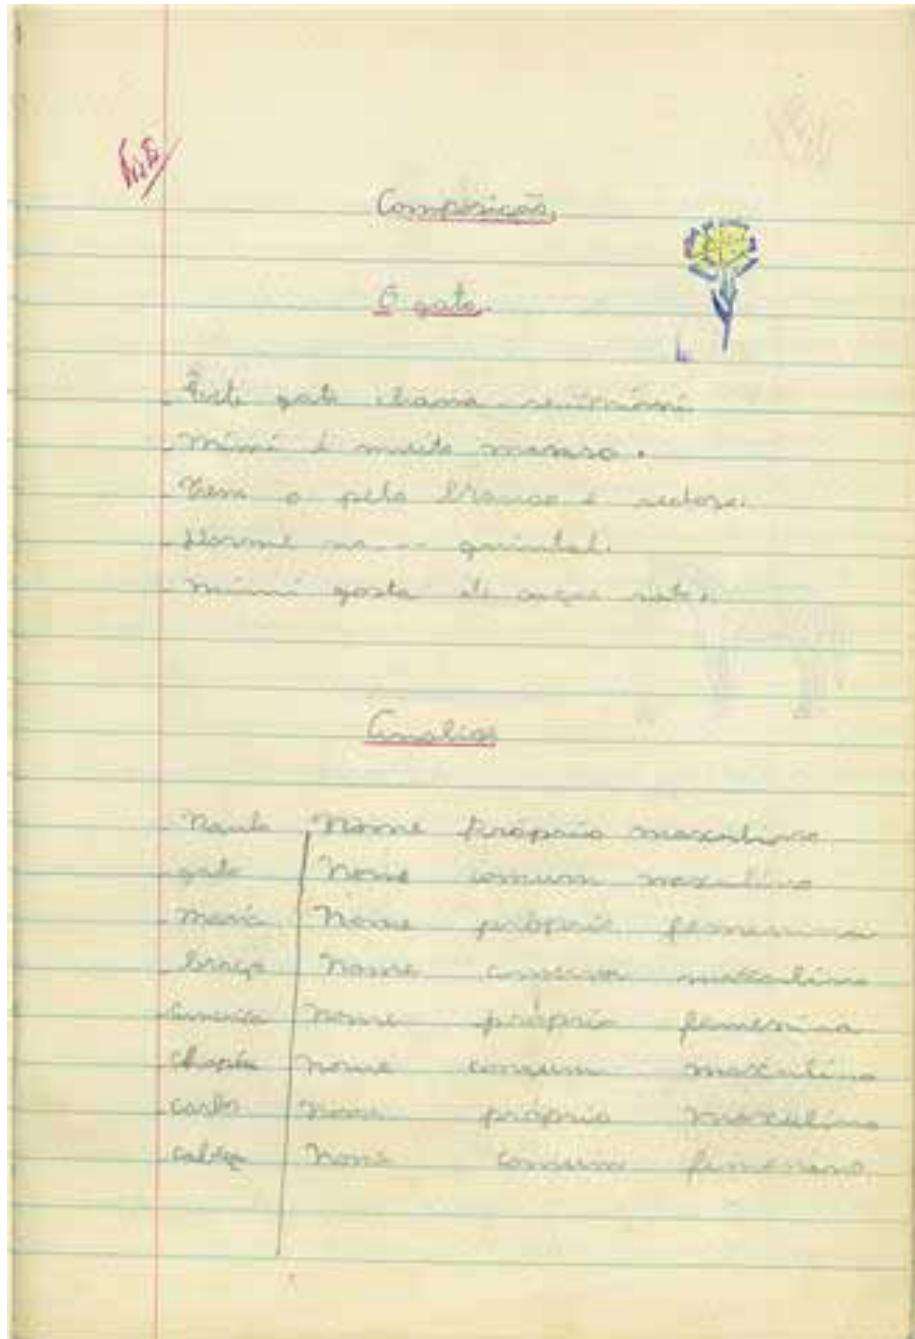 Visto
Composição
O gato.
Este gato chama-se Mimi
Mimi é muito manso.
Tem o pelo branco e
Dorme no quintal.
Mimi gosta de ratos.
Analise
Nome próprio masculino
gato Nome comum masculino
Maria Nome próprio femenino
braço Nome comum masculino
America Nome próprio femenino
chapéu Nome comum masculino
Carlos Nome próprio masculino
cabeça Nome comum femenino